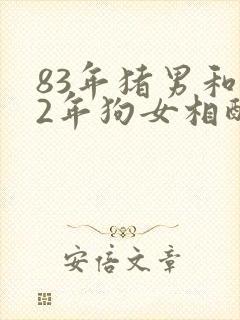 83年猪男和
2年狗女相配
安信文章